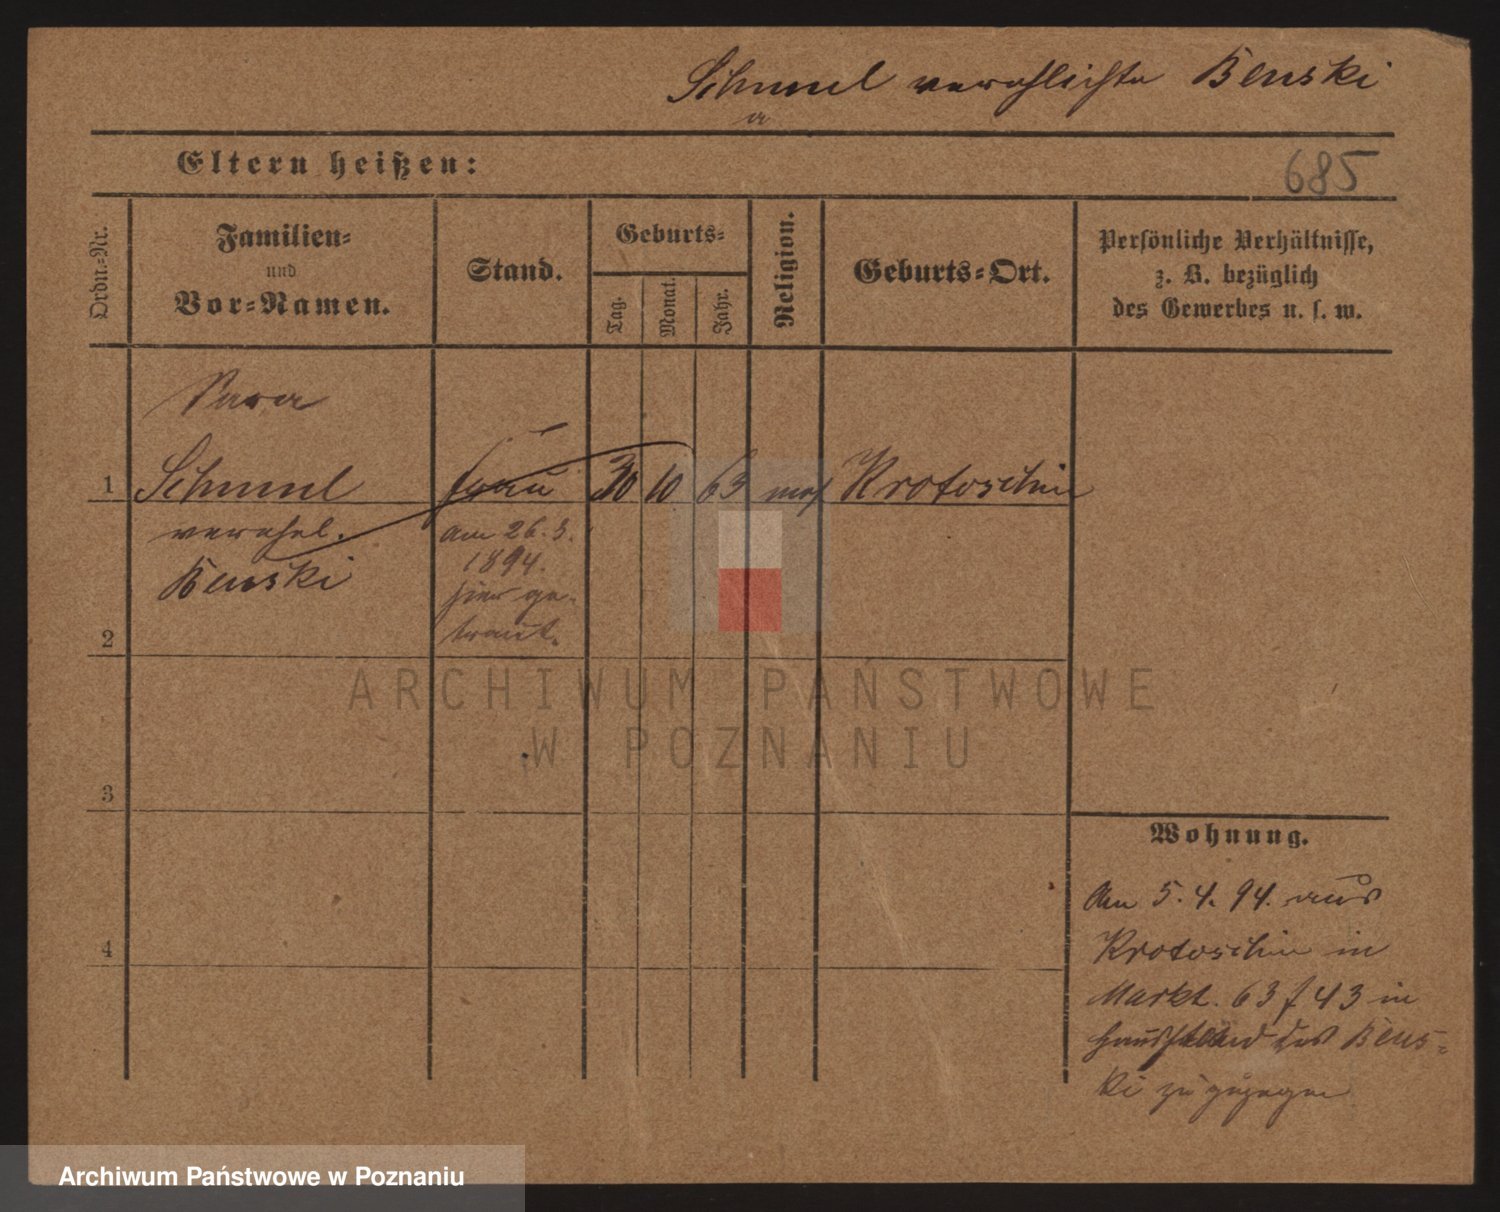 Schmul verehlichte Benski
a
Eltern heißen:
685
Ordn.-Nr.
Familien-
und
Vor-Namen.
Stand.
Geburts-
Tag.
Monat.
Jahr.
Religion.
Geburts-Ort.
Persönliche Verhältnisse,
z. B. bezüglich
des Gewerbes u. s. w.
Sara
1 Schmul Frau 30 10 63 mos Krotoschin
verehel.
Benski
am 26. 3.
1894.
hier ge-
traut.
2
3
4
Wohnung.
Am 5. 4. 94. aus
Krotoschin in
Markt. 63 f 43 in
Hausstand des Bens-
ki zugezogen
ARCHIWUM PAŃSTWOWE
W POZNANIU
Archiwum Państwowe w Poznaniu